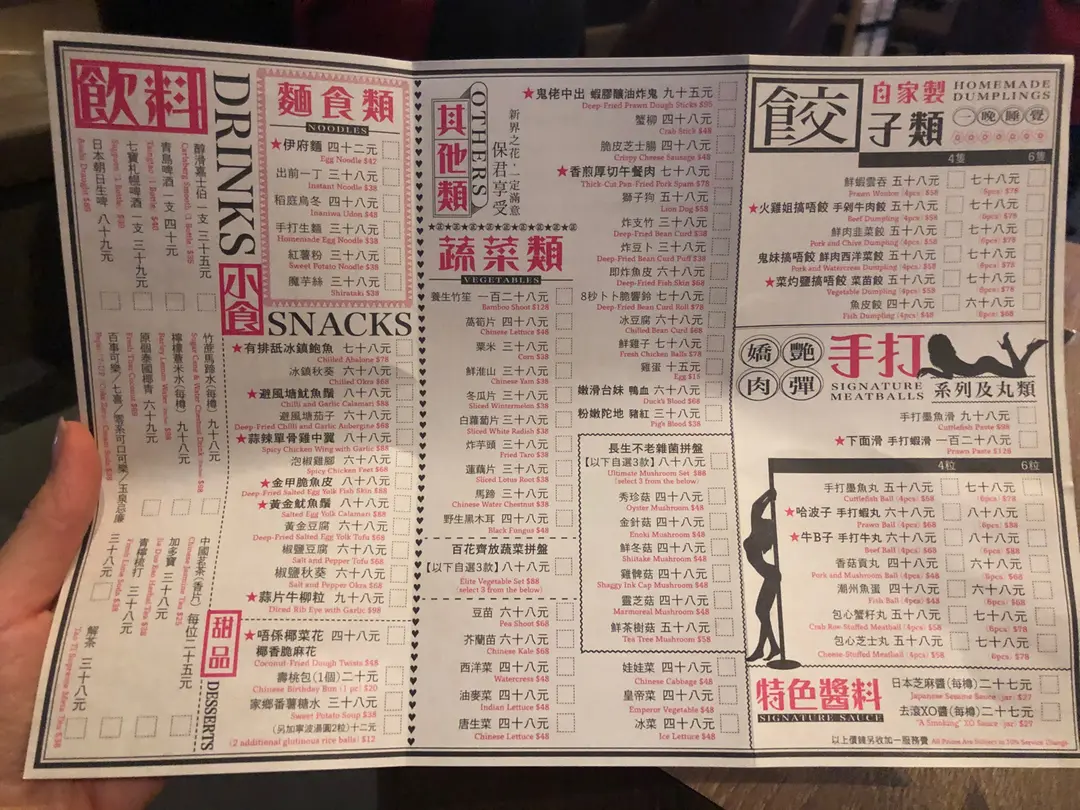 飲料
DRINKS
醇滑嘉士伯 一支 三十五元
Carlsberg Smooth (1 Bottle) $35
青島啤酒 一支 四十元
Tsingtao (1 Bottle) $40
七寶札幌啤酒 一支 三十九元
日本朝日生啤 八十九元
Asahi Draught $89
竹蔗馬蹄水(每樽) 九十八元
檸檬薏米水(每樽) 九十八元
原個泰國椰青 六十九元
Fresh Thai Coconut $69
中國茗茶(香片) 每位二十五元
Chinese Jasmine Tea $25
加多寶 三十八元
Jia Duo Bao Herbal Tea $38
青檸梳打 三十八元
Fresh Lime Soda $38
三十八元
解茶 三十八元
麵食類
NOODLES
★伊府麵 四十二元
Egg Noodle $42
出前一丁 三十八元
Instant Noodle $38
稻庭烏冬 四十八元
Inaniwa Udon $48
手打生麵 三十八元
Homemade Egg Noodle $38
紅薯粉 三十八元
Sweet Potato Noodle $38
魔芋絲 三十八元
Shirataki $38
小食
SNACKS
★有排舐冰鎮鮑魚 七十八元
Chilled Abalone $78
冰鎮秋葵 六十八元
Chilled Okra $68
★避風塘魷魚鬚 八十八元
Chilli and Garlic Calamari $88
避風塘茄子 六十八元
Deep-Fried Chilli and Garlic Aubergine $68
★蒜辣單骨雞中翼 八十八元
Spicy Chicken Wing with Garlic $88
泡椒雞腳 六十八元
Spicy Chicken Feet $68
★金甲脆魚皮 八十八元
Deep-Fried Salted Egg Yolk Fish Skin $88
★黃金魷魚鬚 八十八元
Salted Egg Yolk Calamari $88
黃金豆腐 六十八元
Deep-Fried Salted Egg Yolk Tofu $68
椒鹽豆腐 六十八元
Salt and Pepper Tofu $68
椒鹽秋葵 六十八元
Salt and Pepper Okra $68
★蒜片牛柳粒 九十八元
Diced Rib Eye with Garlic $98
甜品
DESSERTS
★唔係椰菜花 四十八元
椰香脆麻花
Coconut-Fried Dough Twists $48
壽桃包(1個) 二十元
Chinese Birthday Bun (1 pc) $20
家鄉番薯糖水 三十八元
Sweet Potato Soup $38
(另加寧波湯圓2粒)十二元
(2 additional glutinous rice balls) $12
其他類
OTHERS
新界之花,一定滿意
保君享受
★鬼佬中出 蝦膠釀油炸鬼 九十五元
Deep-Fried Prawn Dough Sticks $95
蟹柳 四十八元
Crab Stick $48
脆皮芝士腸 四十八元
Crispy Cheese Sausage $48
★香煎厚切午餐肉 七十八元
Thick-Cut Pan-Fried Pork Spam $78
獅子狗 五十八元
Lion Dog $58
炸支竹 三十八元
Deep-Fried Bean Curd $38
炸豆卜 三十八元
Deep-Fried Bean Curd Puff $38
即炸魚皮 六十八元
Deep-Fried Fish Skin $68
8秒卜卜脆響鈴 七十八元
Deep-Fried Bean Curd Roll $78
冰豆腐 六十八元
Chilled Bean Curd $68
鮮雞子 七十八元
Fresh Chicken Balls $78
雞蛋 十五元
Egg $15
嫩滑台妹 鴨血 六十八元
Duck's Blood $68
粉嫩陀地 豬紅 三十八元
Pig's Blood $38
蔬菜類
VEGETABLES
養生竹笙 一百二十八元
Bamboo Shoot $128
萵筍片 四十八元
Chinese Lettuce $48
粟米 三十八元
Corn $38
鮮淮山 三十八元
Chinese Yam $38
冬瓜片 三十八元
Sliced Wintermelon $38
白蘿蔔片 三十八元
Sliced White Radish $38
炸芋頭 三十八元
Fried Taro $38
蓮藕片 三十八元
Sliced Lotus Root $38
馬蹄 三十八元
Chinese Water Chestnut $38
野生黑木耳 四十八元
Black Fungus $48
百花齊放蔬菜拼盤
【以下自選3款】八十八元
Elite Vegetable Set $88
(select 3 from the below)
豆苗 六十八元
Pea Shoot $68
芥蘭苗 六十八元
Chinese Kale $68
西洋菜 四十八元
Watercress $48
油麥菜 四十八元
Indian Lettuce $48
唐生菜 四十八元
Chinese Lettuce $48
長生不老雜菌拼盤
【以下自選3款】八十八元
Ultimate Mushroom Set $88
(select 3 from the below)
秀珍菇 四十八元
Oyster Mushroom $48
金針菇 四十八元
Enoki Mushroom $48
鮮冬菇 四十八元
Shiitake Mushroom $48
雞髀菇 四十八元
Shaggy Ink Cap Mushroom $48
靈芝菇 四十八元
Marmoreal Mushroom $48
鮮茶樹菇 五十八元
Tea Tree Mushroom $58
娃娃菜 四十八元
Chinese Cabbage $48
皇帝菜 四十八元
Emperor Vegetable $48
冰菜 四十八元
Ice Lettuce $48
餃子類
自家製
HOMEMADE DUMPLINGS
一晚睡覺
4隻 6隻
鮮蝦雲吞 五十八元 七十八元
Prawn Wonton (4pcs) $58 (6pcs) $78
★火雞姐搞唔餃 手剁牛肉餃 五十八元 七十八元
Beef Dumpling (4pcs) $58 (6pcs) $78
鮮肉韭菜餃 五十八元 七十八元
Pork and Chive Dumpling (4pcs) $58 (6pcs) $78
鬼妹搞唔餃 鮮肉西洋菜餃 五十八元 七十八元
Pork and Watercress Dumpling (4pcs) $58 (6pcs) $78
★菜灼鹽搞唔餃 菜苗餃 五十八元 七十八元
Vegetable Dumpling (4pcs) $58 (6pcs) $78
魚皮餃 四十八元 六十八元
Fish Dumpling (4pcs) $48 (6pcs) $68
嬌艷肉彈
手打
SIGNATURE MEATBALLS
系列及丸類
手打墨魚滑 九十八元
Cuttlefish Paste $98
★下面滑 手打蝦滑 一百二十八元
Prawn Paste $128
4粒 6粒
手打墨魚丸 五十八元 七十八元
Cuttlefish Ball (4pcs) $58 (6pcs) $78
★哈波子 手打蝦丸 六十八元 八十八元
Prawn Ball (4pcs) $68 (6pcs) $88
★牛B子 手打牛丸 六十八元 八十八元
Beef Ball (4pcs) $68 (6pcs) $88
香菇貢丸 四十八元 六十八元
Pork and Mushroom Ball (4pcs) $48 (6pcs) $68
潮州魚蛋 四十八元 六十八元
Fish Ball (4pcs) $48 (6pcs) $68
包心蟹籽丸 五十八元 七十八元
Crab Roe-Stuffed Meatball (4pcs) $58 (6pcs) $78
包心芝士丸 五十八元 七十八元
Cheese-Stuffed Meatball (4pcs) $58 (6pcs) $78
特色醬料
SIGNATURE SAUCE
日本芝麻醬(每樽)二十七元
Japanese Sesame Sauce (jar) $27
去滾XO醬(每樽)二十七元
"A Smoking" XO Sauce (jar) $27
以上價錢另收加一服務費 All Prices Are Subject to 10% Service Charge